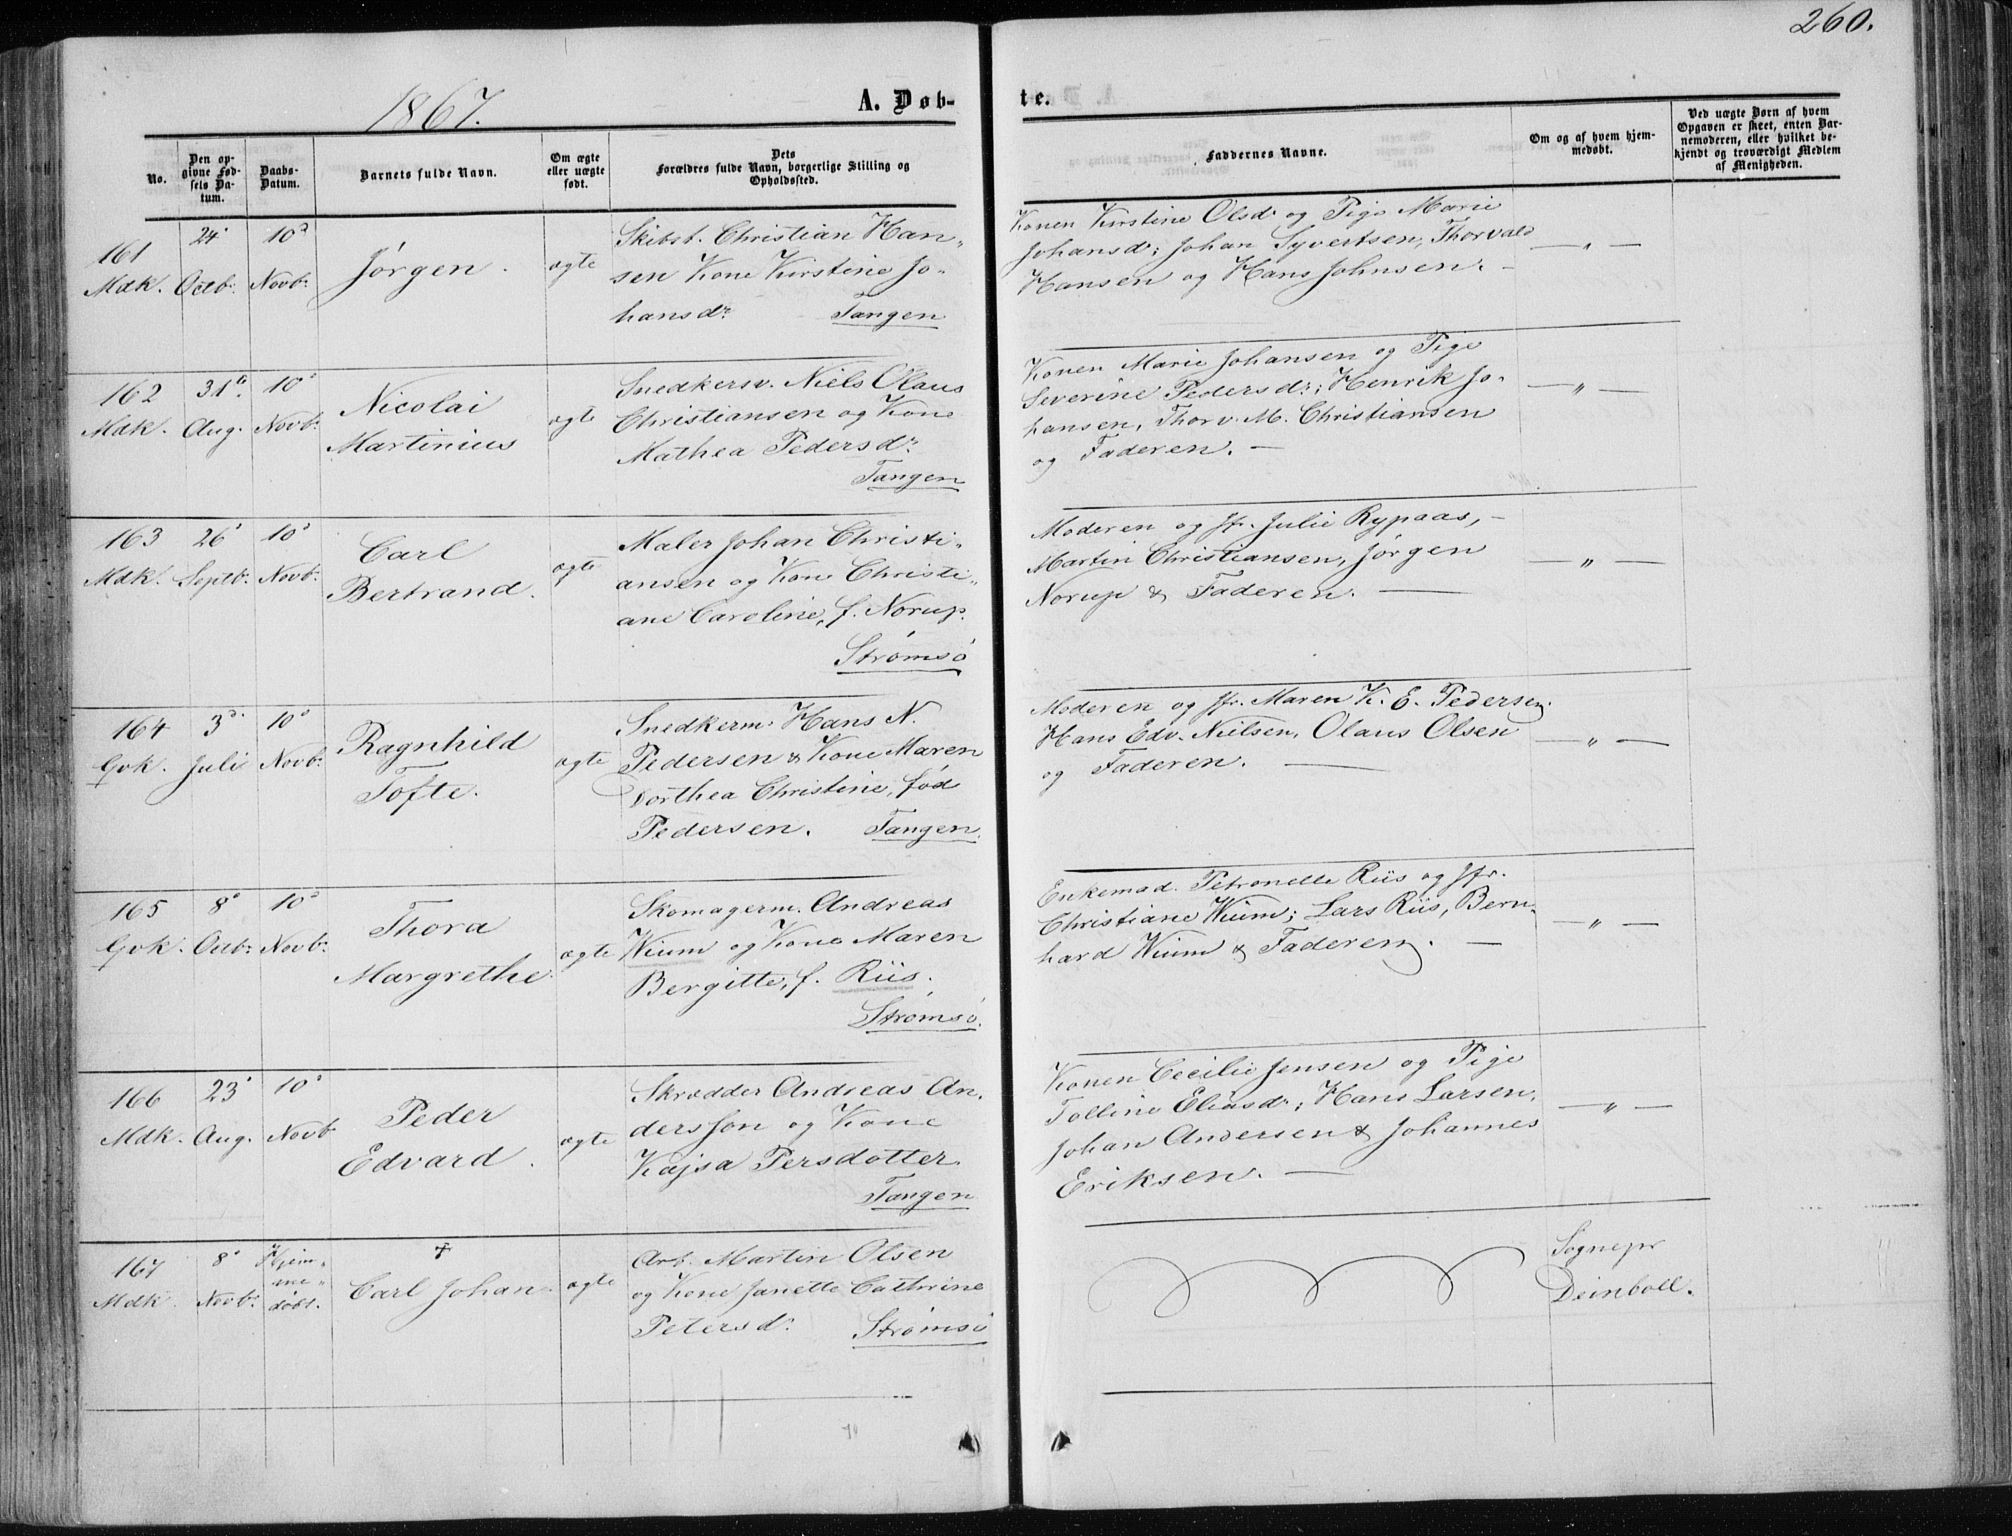 260.
1867.
A. Døb-
te.
No.
Den op-
givne Fød-
sels Da-
tum.
Daabs-
Datum.
Barnets fulde Navn.
Om ægte
eller uægte
født.
Dets
Forældres fulde Navn, borgerlige Stilling og
Opholdssted.
Faddernes Navne.
Om og af hvem hjem-
medøbt.
Ved uægte Børn af hvem
Opgaven er skeet, enten Bar-
nemoderen, eller hvilket be-
kjendt og troværdigt Medlem
af Menigheden.
161
Mdk.
24'
Octbr.
10d
Novbr.
Jørgen.
ægte
Skibst. Christian Han-
sen Kone Kirstine Jo-
hansdr.
Tangen
Konen Kirstine Olsdr. og Pige Marie
Johansd; Johan Syvertsen, Thorvald
Hansen og Hans Johnsen. -
— „ —
162
Mdk.
31te.
Aug.
10d
Novbr.
Nicolai
Martinius
ægte
Snedkersv. Niels Olaus
Christiansen og Kone
Mathea Pedersdr.
Tangen
Konen Marie Johansen og Pige
Severine Pedersdr.; Henrik Jo-
hansen, Thorv. M. Christiansen
og Faderen. —
— „ —
163
Mdk.
26'
Septbr.
10d
Novbr.
Carl
Bertrand.
ægte
Maler Johan Christi-
ansen og Kone Christi-
ane Caroline, f. Norup.
Strømsø
Moderen og Jfr. Julie Rypaas, -
Martin Christiansen, Jørgen
Norup & Faderen. —
— „ —
164
Gvk.
3d.
Juli
10d
Novbr.
Ragnhild
Tofte.
ægte
Snedkerm. Hans N.
Pedersen & Kone Maren
Dorthea Christine, fød
Pedersen. Tangen.
Moderen og Jfr. Maren K. E. Pedersen.
Hans Edv. Nielsen, Olaus Olsen
og Faderen. —
— „ —
165
Gvk.
8d
Octbr.
10d
Novbr.
Thora
Margrethe.
ægte
Skomagerm. Andreas
Wium og Kone Maren
Bergitte, f. Riis.
Strømsø.
Enkemad. Petronelle Riis og Jfr.
Christiane Wium; Lars Riis, Bern-
hard Wium & Faderen. —
— „ —
166
Mdk.
23'
Aug.
10d
Novb
Peder
Edvard.
ægte
Skrædder Andreas An-
dersson og Kone
Kajsa Persdotter.
Tangen
Konen Cecilie Jensen og Pige
Tolline Eliasdr.; Hans Larsen,
Johan Andersen & Johannes
Eriksen. —
— „ —
167
Mdk.
8d
Novbr.
Hjem-
me-
døbt.
†
Carl Johan
ægte
Arb. Martin Olsen
og Kone Janette Cathrine
Petersd.
Strømsø
Sognepr
Deinboll.